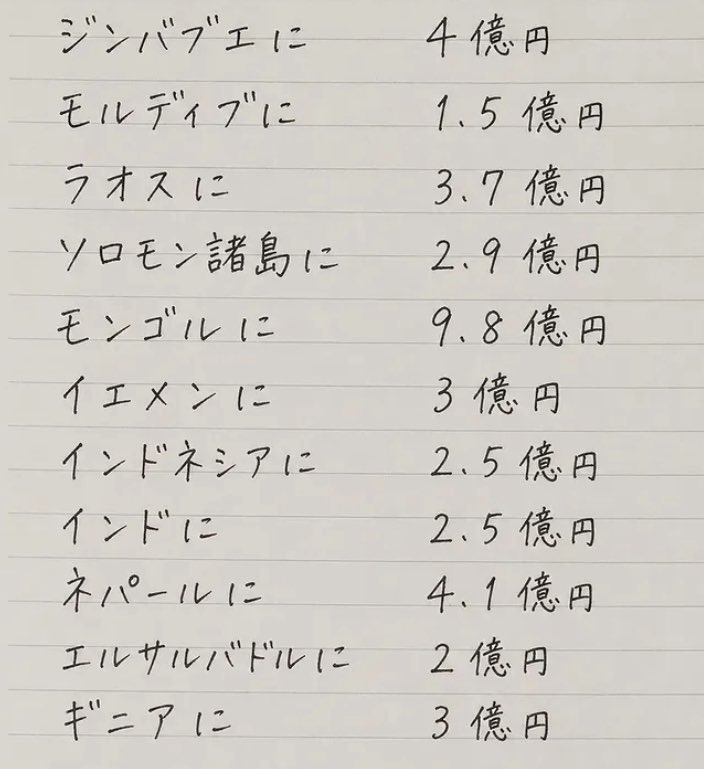 ジンバブエに 4億円
モルディブに 1.5億円
ラオスに 3.7億円
ソロモン諸島に 2.9億円
モンゴルに 9.8億円
イエメンに 3億円
インドネシアに 2.5億円
インドに 2.5億円
ネパールに 4.1億円
エルサルバドルに 2億円
ギニアに 3億円